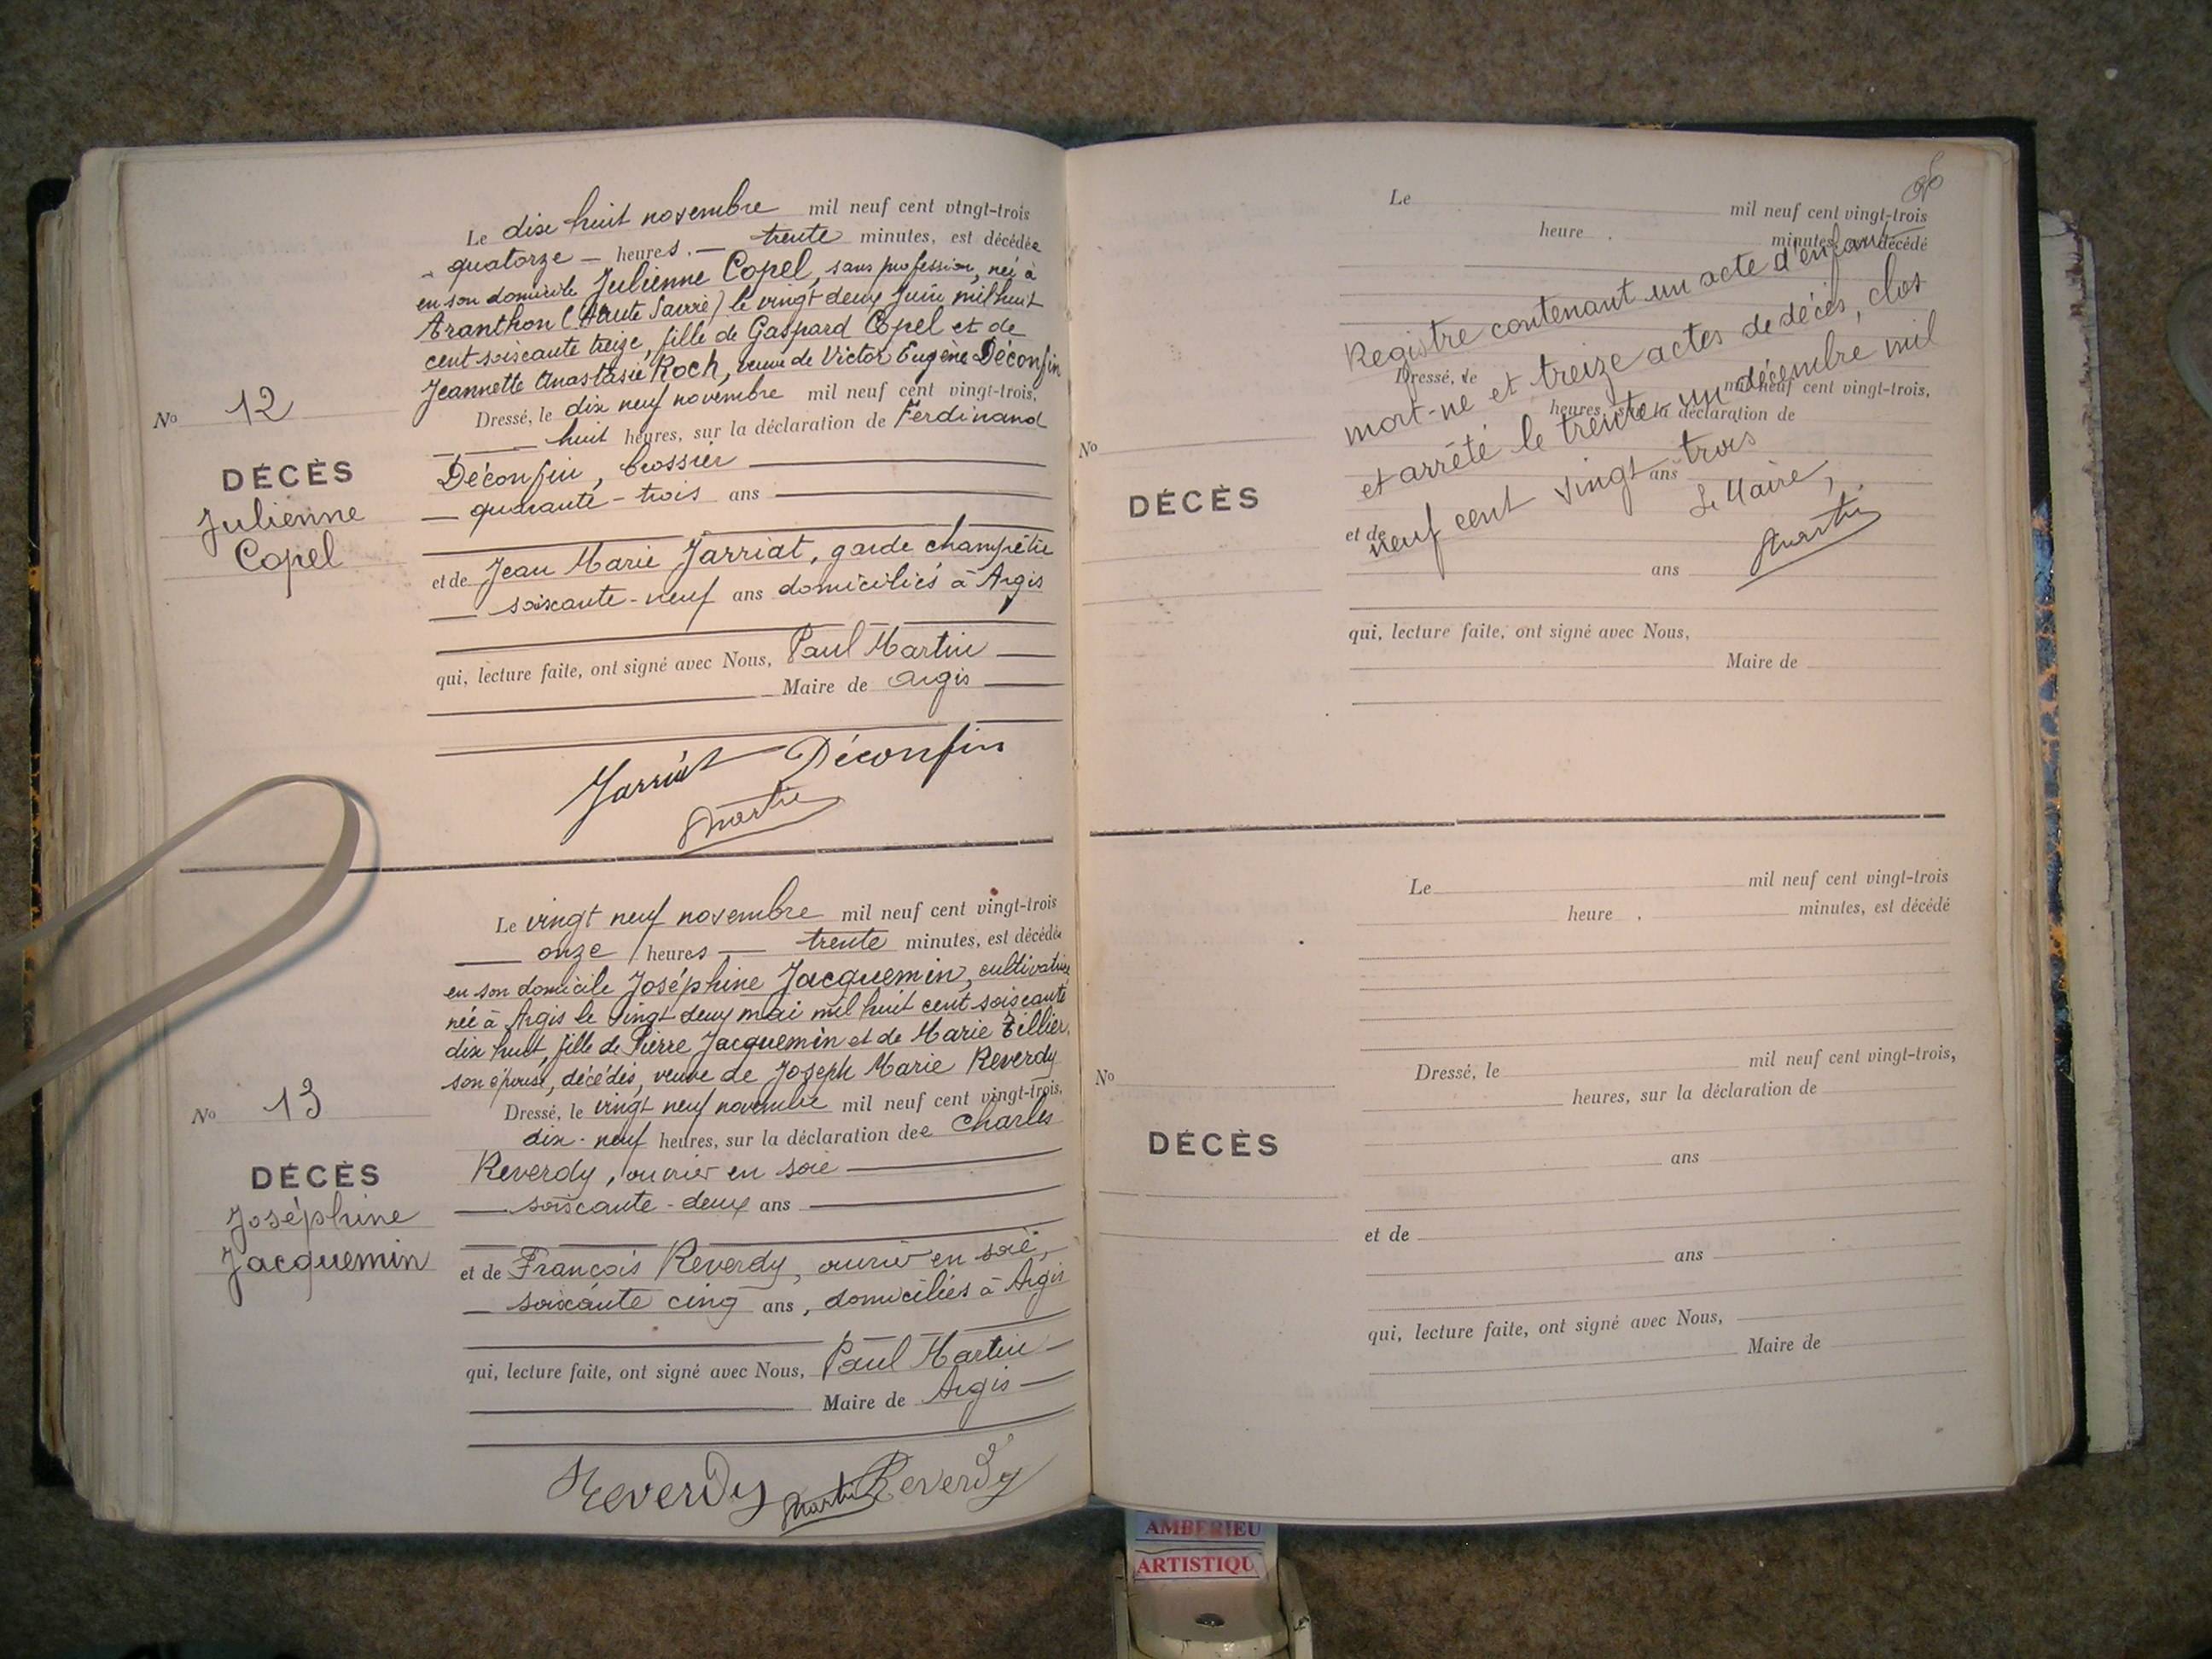 Le dix huit novembre mil neuf cent vingt-trois
quatorze — heures. — trente minutes, est décédée
en son domicile Julienne Copel, sans profession, née à
Aranthon (Haute Savoie) le vingt deux Juin mil huit
cent soixante treize, fille de Gaspard Copel et de
Jeannette Anastasie Roch, veuve de Victor Eugène Déconfin
Dressé, le dix neuf novembre mil neuf cent vingt-trois,
huit heures, sur la déclaration de Ferdinand
Déconfin, brossier
quarante-trois ans
et de Jean Marie Jarriat, garde champêtre
soixante-neuf ans domiciliés à Argis
qui, lecture faite, ont signé avec Nous, Paul Martin
Maire de Argis
Jarriat Déconfin
Martin
No 12
DÉCÈS
Julienne
Copel
Le vingt neuf novembre mil neuf cent vingt-trois
onze heures — trente minutes, est décédée
en son domicile Joséphine Jacquemin, cultivatrice
née à Argis le vingt deux mai mil huit cent soixante
dix huit, fille de Pierre Jacquemin et de Marie Tillier,
son épouse, décédés, veuve de Joseph Marie Reverdy
Dressé, le vingt neuf novembre mil neuf cent vingt-trois,
dix-neuf heures, sur la déclaration de Charles
Reverdy, ouvrier en soie
soixante-deux ans
et de François Reverdy, ouvrier en soie,
soixante cinq ans, domiciliés à Argis
qui, lecture faite, ont signé avec Nous, Paul Martin
Maire de Argis
Reverdy Martin Reverdy
No 13
DÉCÈS
Joséphine
Jacquemin
Le mil neuf cent vingt-trois
heure . minutes, est décédé
Registre contenant un acte d'enfant
mort-né et treize actes de décès, clos
et arrêté le trente un décembre mil
neuf cent vingt trois
Le Maire,
Martin
Dressé, le mil neuf cent vingt-trois,
heures, sur la déclaration de
ans
et de
ans
qui, lecture faite, ont signé avec Nous,
Maire de
No
DÉCÈS
Le mil neuf cent vingt-trois
heure . minutes, est décédé
Dressé, le mil neuf cent vingt-trois,
heures, sur la déclaration de
ans
et de
ans
qui, lecture faite, ont signé avec Nous,
Maire de
No
DÉCÈS
AMBERIEU
ARTISTIQU